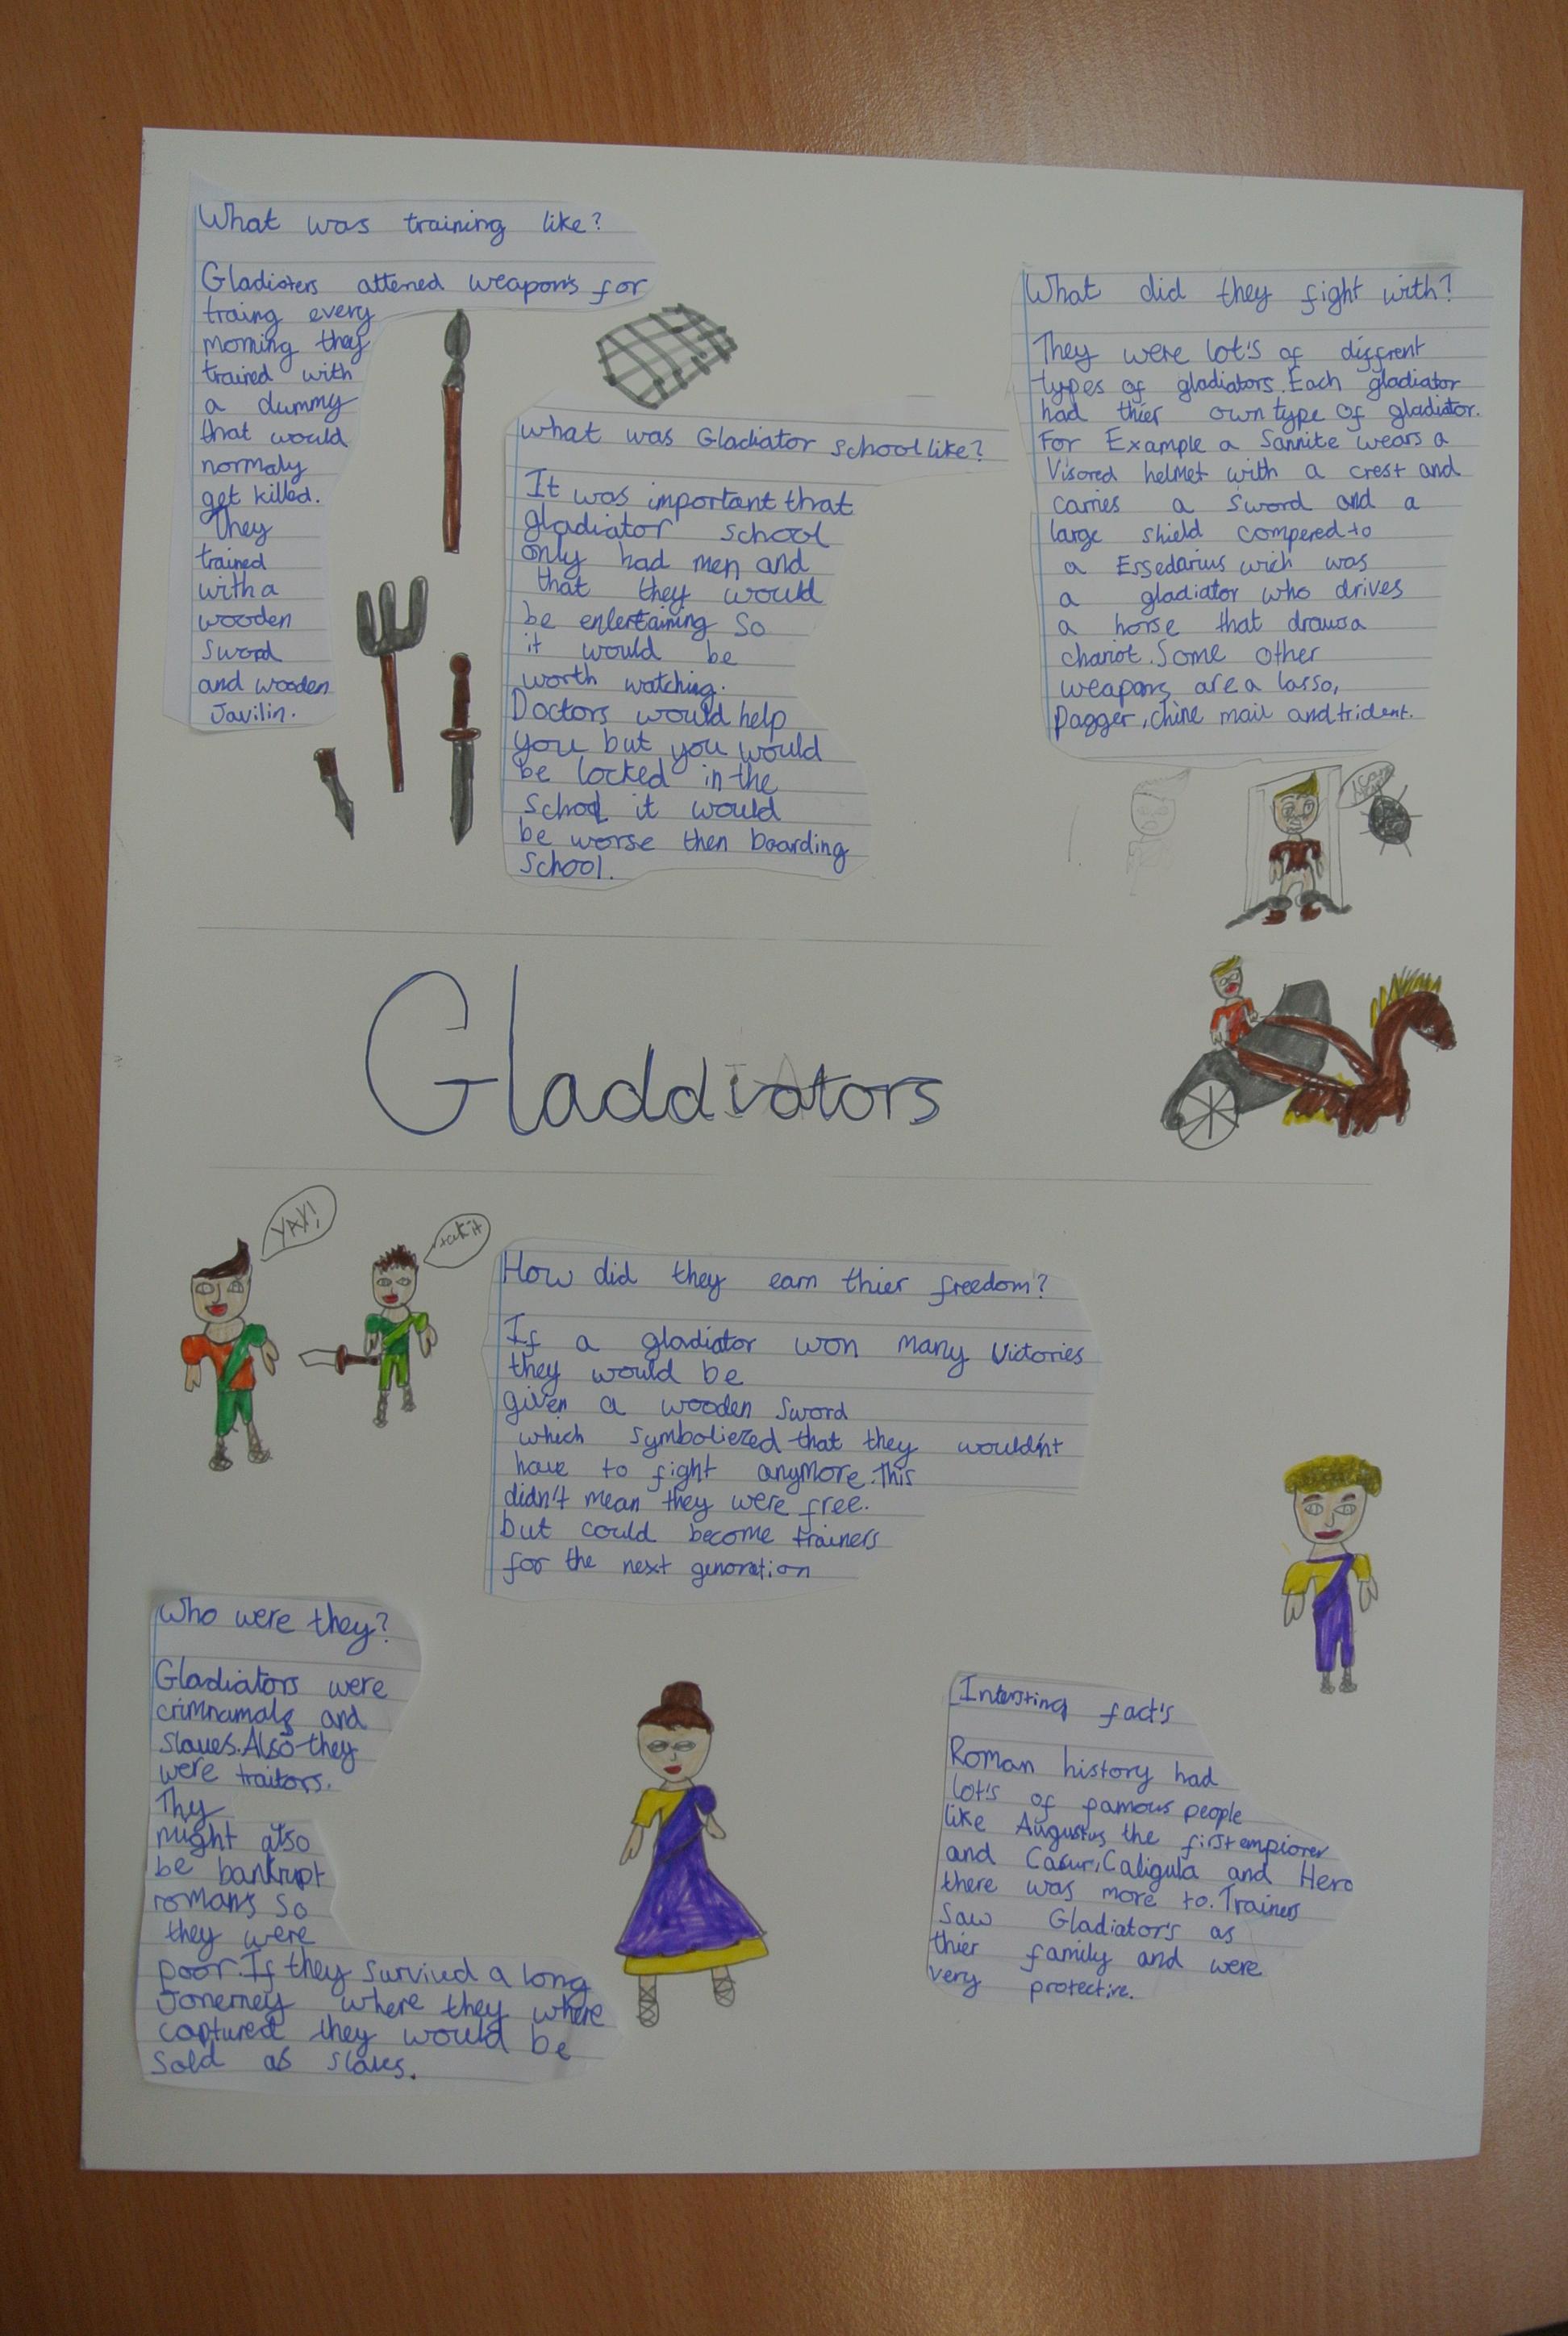 What was training like?
Gladioters attened weapon's for
traing every
morning they
trained with
a dummy
that would
normaly
get killed.
They
trained
with a
wooden
sword
and wooden
Javilin.
What was Gladiator school like?
It was important that
gladiator school
only had men and
that they would
be entertaining So
it would be
worth watching.
Doctors would help
you but you would
be locked in the
school it would
be worse then boarding
School.
What did they fight with?
They were lot's of diffrent
types of gladiators. Each gladiator
had thier own type of gladiator.
For Example a Samnite wears a
Visored helmet with a crest and
carries a Sword and a
large shield compered to
a Essedarius wich was
a gladiator who drives
a horse that draws a
chariot. Some other
weapons are a lasso,
Dagger, chine mail and trident.
Gladdiators
YAY!
take it
How did they earn thier freedom?
If a gladiator won many Victories
they would be
given a wooden sword
which symboliezed that they wouldn't
have to fight anymore. This
didn't mean they were free.
but could become trainers
for the next genoration
Who were they?
Gladiators were
crimnamals and
Slaves. Also they
were traitors.
Thy
might also
be bankrupt
romans So
they were
poor. If they survived a long
Jonerney where they where
captured they would be
Sold as slaves.
Intersting fact's
Roman history had
lot's of famous people
like Augustus the first empiorer
and Casur, Caligula and Hero
there was more to. Trainers
Saw Gladiator's as
thier family and were
very protective.